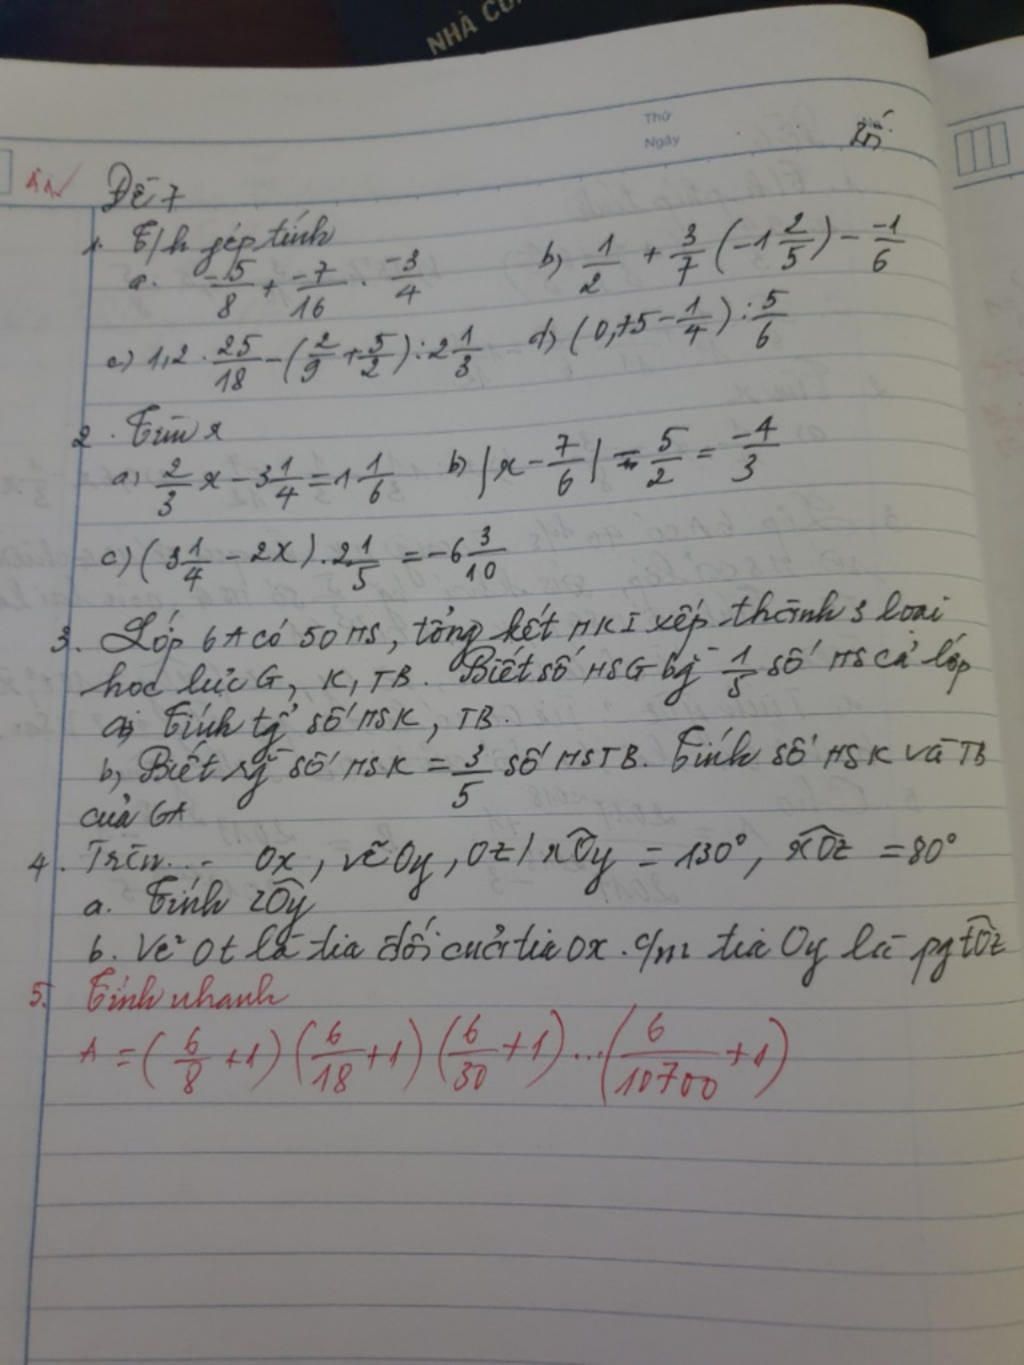 NHÀ CU
Thứ
Ngày
Đề 7
1. T/h phép tính
a. -5/8 + -7/16 . -3/4 b) 1/2 + 3/7 (-1 2/5) - -1/6
c) 1,2 . 25/18 - (2/9 + 5/2) : 2 1/3 d) (0,75 - 1/4) : 5/6
2. Tìm x
a) 2/3 x - 3 1/4 = 1 1/6 b) |x - 7/6| - 5/2 = -4/3
c) (3 1/4 - 2x) . 2 1/5 = -6 3/10
3. Lớp 6A có 50 HS, tổng kết HKI xếp thành 3 loại
học lực G, K, TB. Biết số HSG bg 1/5 số HS cả lớp
a) Tính tg số HSK, TB.
b, Biết rg số HSK = 3/5 số HSTB. Tính số HSK và TB
của 6A
4. Trên... - Ox, vẽ Oy, Oz / xOy = 130°, xOz = 80°
a. Tính zOy
b. Vẽ Ot là tia đối của tia Ox. c/m tia Oy là pg tOz
5. Tính nhanh
A = (6/8 + 1) (6/18 + 1) (6/30 + 1) ... (6/10700 + 1)